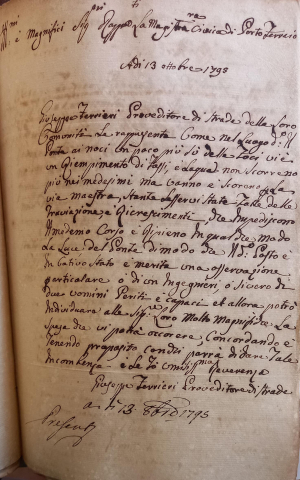 e Magnifici Sig.ri Rapp.ti La Magistra Civica di Porto Ferraio
Adi 13 ottobre 1795
Giuseppe Terrieri Proveditore di strade della Loro
Comunità La rappresenta Come nel Luogo d:o Il
Ponte ai noci un poco più sù delle foci vi è
un Riempimento di Sassi, e La qual non Scorrono
più nei medesimi ma Vanno e Scorrono p. La
via maestra, Stante esservi State fatte delle
e Ricrescimenti, che Impediscono
Il medemo Corso e in qualche modo
La Luce del Ponte di modo che il d:o Posto è
In Cativo Stato e merita una osservazione
particolare o di un Ingegnieri, o Sivero di
due Uomini Periti e Capaci et allora potrà
Individuare alle Sig:e Loro Molto Magnifiche La
Spesa che vi potrà occorere Concordando e
Tenendo proposito Con chi parrà di dare Tale
Incombenza. e Le fò umiliss.ma Reverenza
Giuseppe Terrieri Proveditore di strade
a dì 13. 8bre 1795
Present.